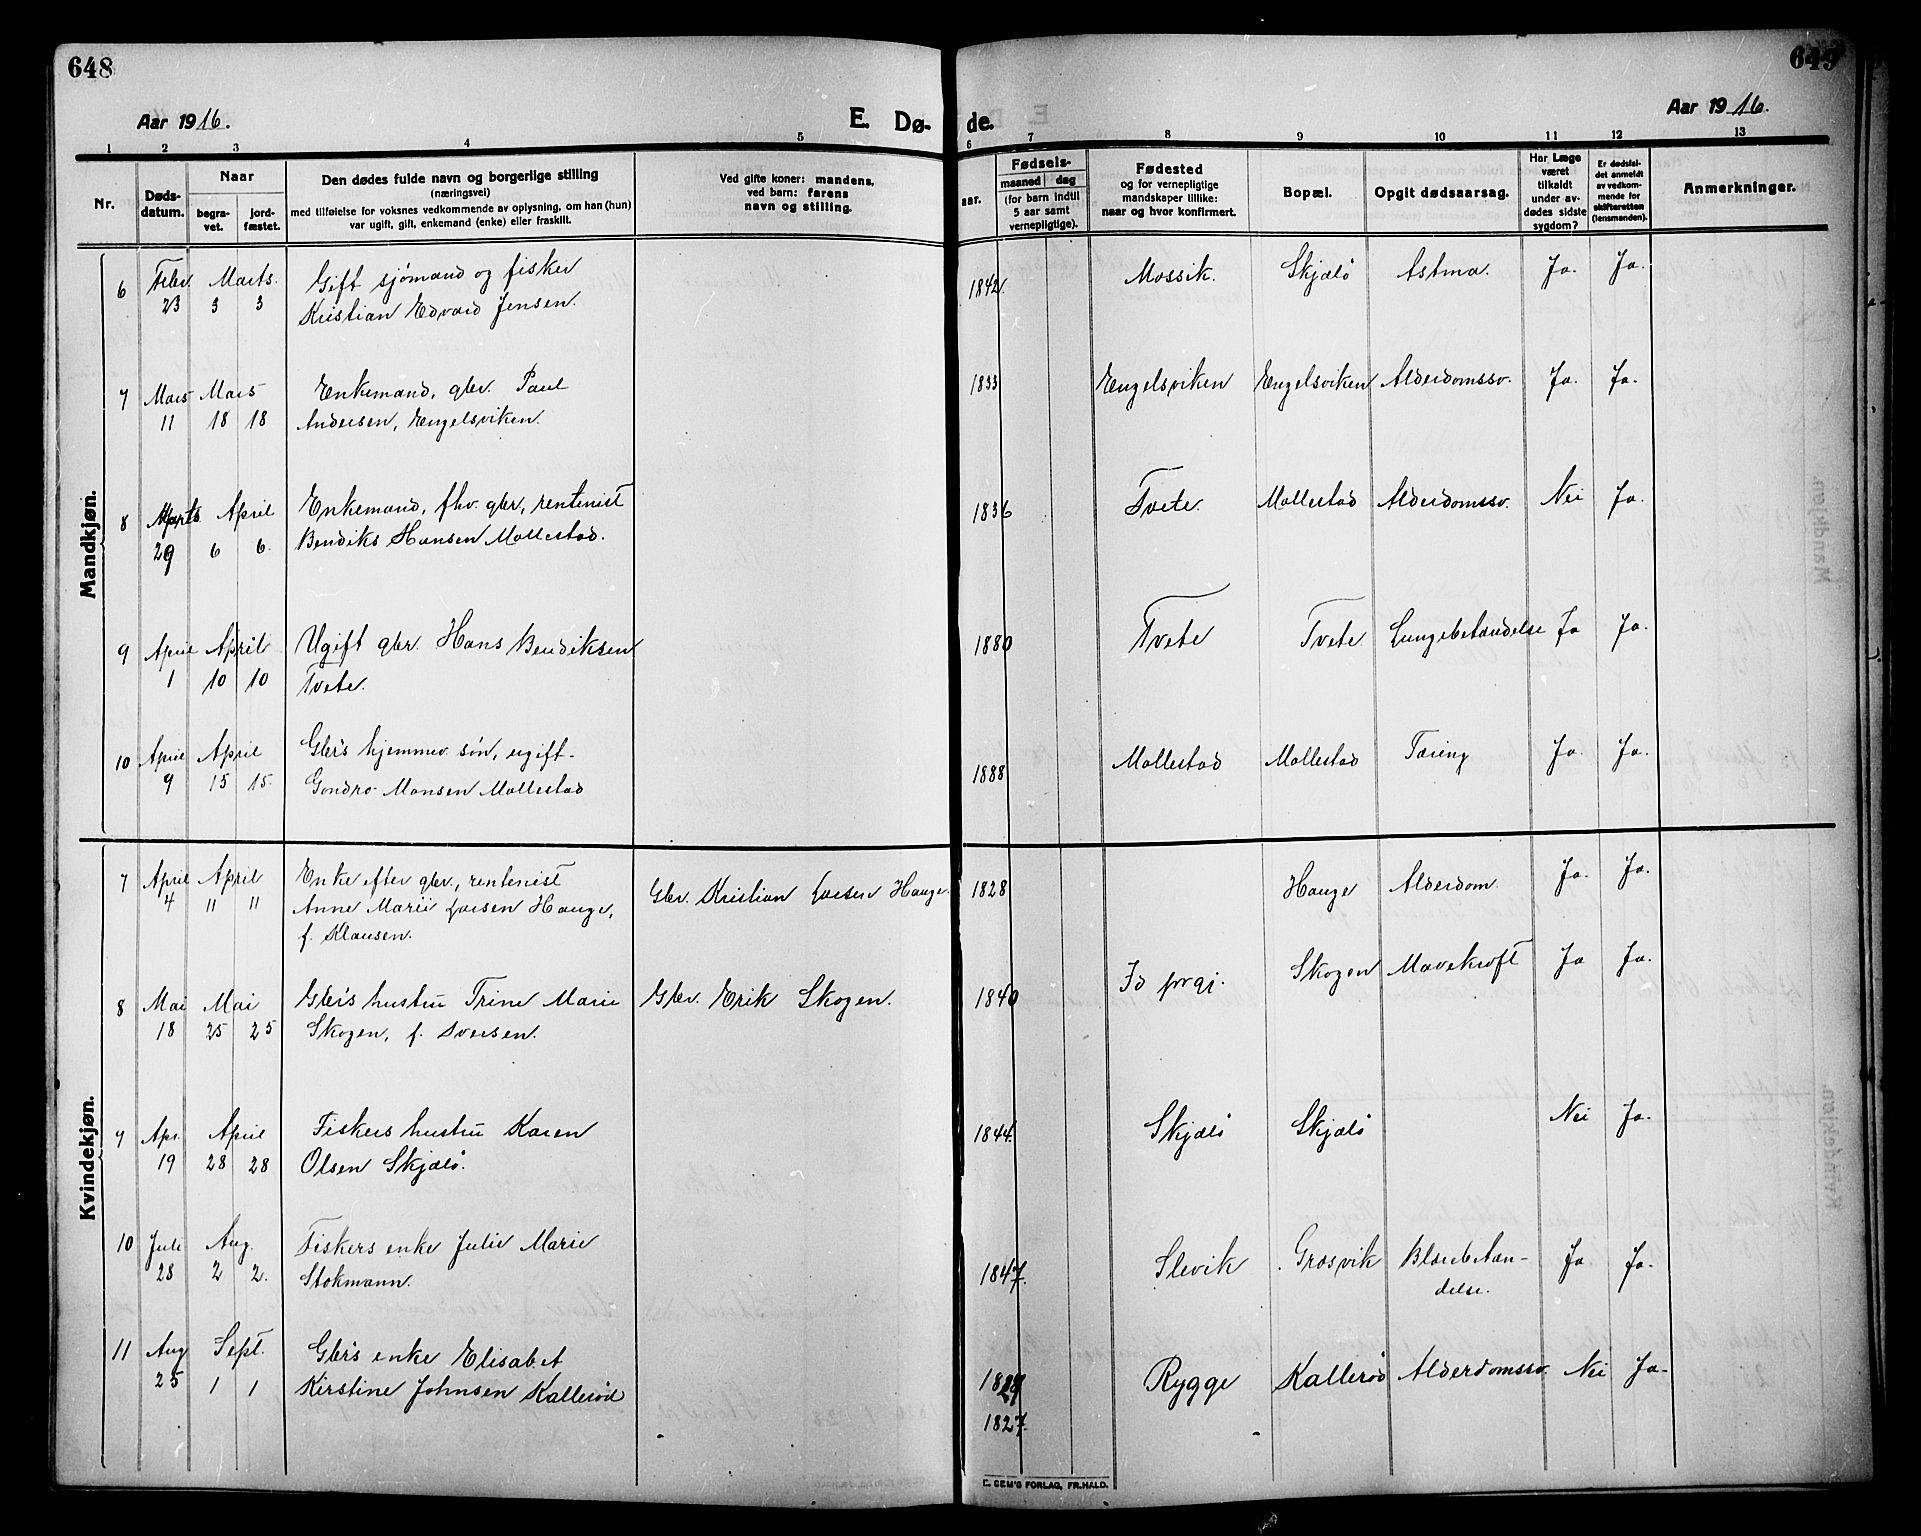 648
649
Aar 1916.
E. Dø-
de.
Aar 1916.
1 2 3 4 5 6 7 8 9 10 11 12 13
Nr.
Døds-
datum.
Naar
begra-
vet.
jord-
fæstet.
Den dødes fulde navn og borgerlige stilling
(næringsvei)
med tilføielse for voksnes vedkommende av oplysning, om han (hun)
var ugift, gift, enkemand (enke) eller fraskilt.
Ved gifte koner: mandens,
ved barn: farens
navn og stilling.
aar.
Fødsels-
maaned dag
(for barn indtil
5 aar samt
vernepligtige).
Fødested
og for vernepligtige
mandskaper tillike:
naar og hvor konfirmert.
Bopæl.
Opgit dødsaarsag.
Har Læge
været
tilkaldt
under av-
dødes sidste
sygdom?
Er dødsfal-
det anmeldt
av vedkom-
mende for
skifteretten
(lensmanden).
Anmerkninger.
Mandkjøn.
6 Febr. Marts. Gift sjømand og fisker 1842. Mossik. Skjælø Astma. Ja. Ja.
23 3 3 Kristian Edvard Jensen.
7 Mars Mars Enkemand, gbr. Paul 1833 Engelsviken Engelsviken Alderdomssv. Ja. Ja.
11 18 18 Andersen, Engelsviken.
8 Marts April Enkemand, fhv. gbr, rentenist 1836 Tvete. Mollestad Alderdomssv. Nei Ja.
29 6 6. Bendiks Hansen Mollestad.
9 April April Ugift gbr. Hans Bendiksen 1880 Tvete Tvete Lungebetændelse Ja Ja.
1 10 10 Tvete.
10 April April Gbr's hjemmev. søn, ugift- 1888 Mollestad Mollestad Tæring Ja. Ja.
9 15 15. Gondro Monsen Mollestad
Kvindekjøn.
7 April April Enke efter gbr., rentenist Gbr. Kristian Larsen Hauge. 1828 Hauge Alderdom. Ja. Ja.
4 11 11 Anne Marie Larsen Hauge,
f. Klausen.
8 Mai Mai Gbr's hustru Trine Marie Gbr. Erik Skogen. 1840 Id prgj. Skogen Mavekræft Ja Ja.
18 25 25 Skogen, f. Iversen.
9 Apr. April Fiskers hustru Karen 1844. Skjælø Skjælø Nei Ja.
19 28 28 Olsen Skjælø.
10 Juli Aug. Fiskers enke Julie Marie 1847. Slevik Grosvik Blærebetæn- Ja Ja.
28 2 2. Stokmann. delse.
11 Aug Sept. Gbr's enke Elisabet Rygge Kallerød Alderdomssv. Nei Ja.
25 1 1 Kirstine Johnsen Kallerød
1827.
E. SEM'S FORLAG, FR.HALD.